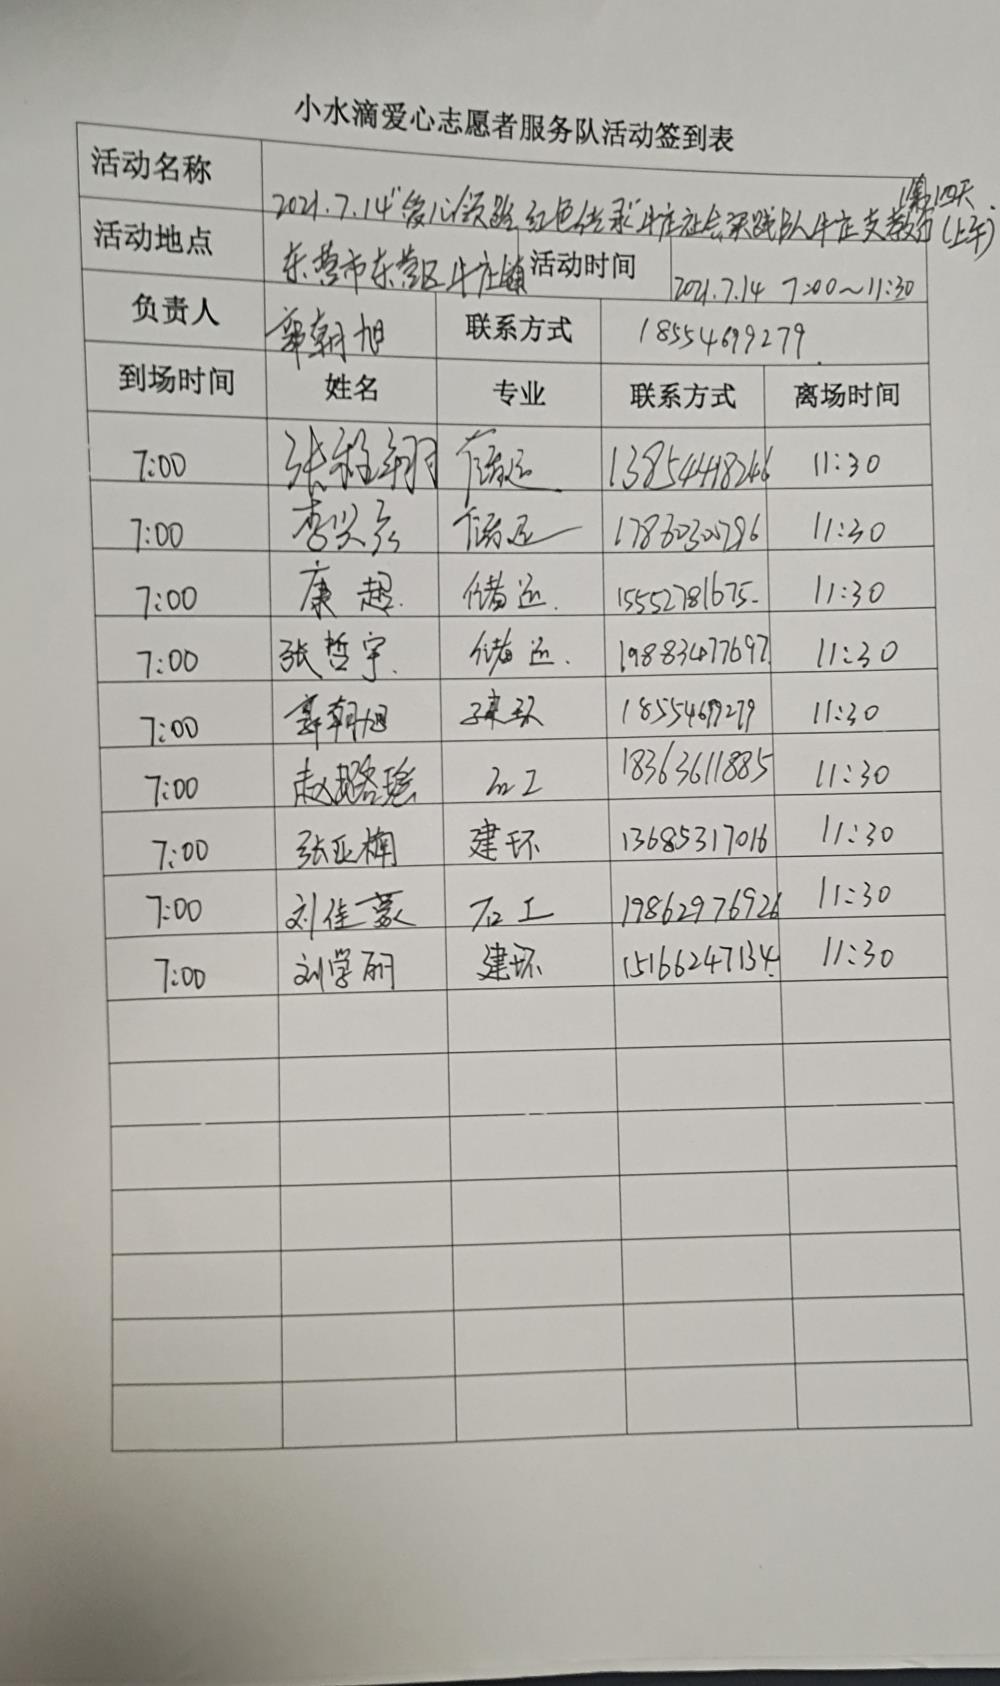 小水滴爱心志愿者服务队活动签到表
第四天
活动名称 2021.7.14“爱心领路 红色传承”牛庄社会实践队牛庄支教 (上午)
活动地点 东营市东营区牛庄镇 活动时间 2021.7.14 7:00~11:30
负责人 郭朝旭 联系方式 18554699279
到场时间 姓名 专业 联系方式 离场时间
7:00 张程翔 储运 13854418246 11:30
7:00 李兴 储运 17863030796 11:30
7:00 康超 储运 15552781675 11:30
7:00 张哲宇 储运 19883477697 11:30
7:00 郭朝旭 建环 18554699279 11:30
7:00 赵璐瑶 石工 18363611885 11:30
7:00 张亚楠 建环 13685317016 11:30
7:00 刘佳 石工 19862976926 11:30
7:00 刘学丽 建环 15166247134 11:30